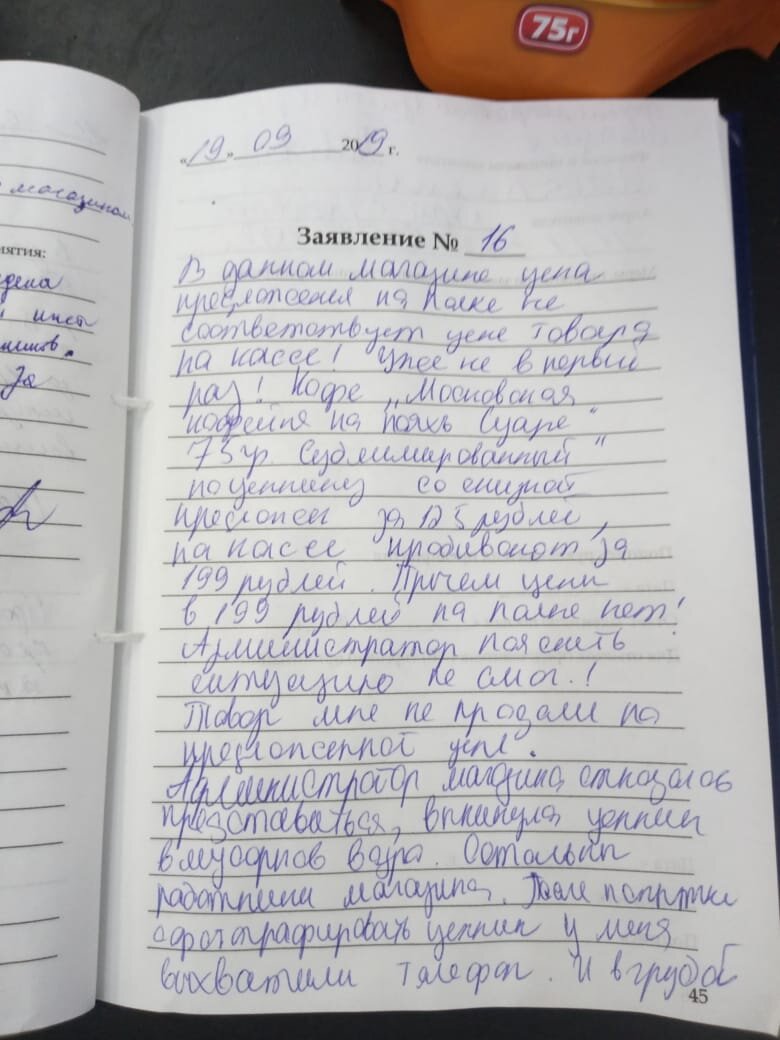 75г
«19» 09 2019 г.
магазином
иятия:
Заявление № 16
В данном магазине цена
предложения на полке не
соответствует цене товара
на кассе! Уже не в первый
раз! Кофе „Московская
кофейня на паяхъ Суаре"
75гр. Сублимированный"
по ценнику со скидкой
предложен за 125 рублей,
на кассе пробивают за
199 рублей. Причем цены
в 199 рублей на полке нет!
Администратор пояснить
ситуацию не смог.!
Товар мне не продали по
предложенной цене.
Администратор магазина отказалась
представиться, выкинула ценник
в мусорное ведро. Остальные
работники магазина. После попытки
сфотографировать ценник у меня
выхватили телефон. И в грубой
45